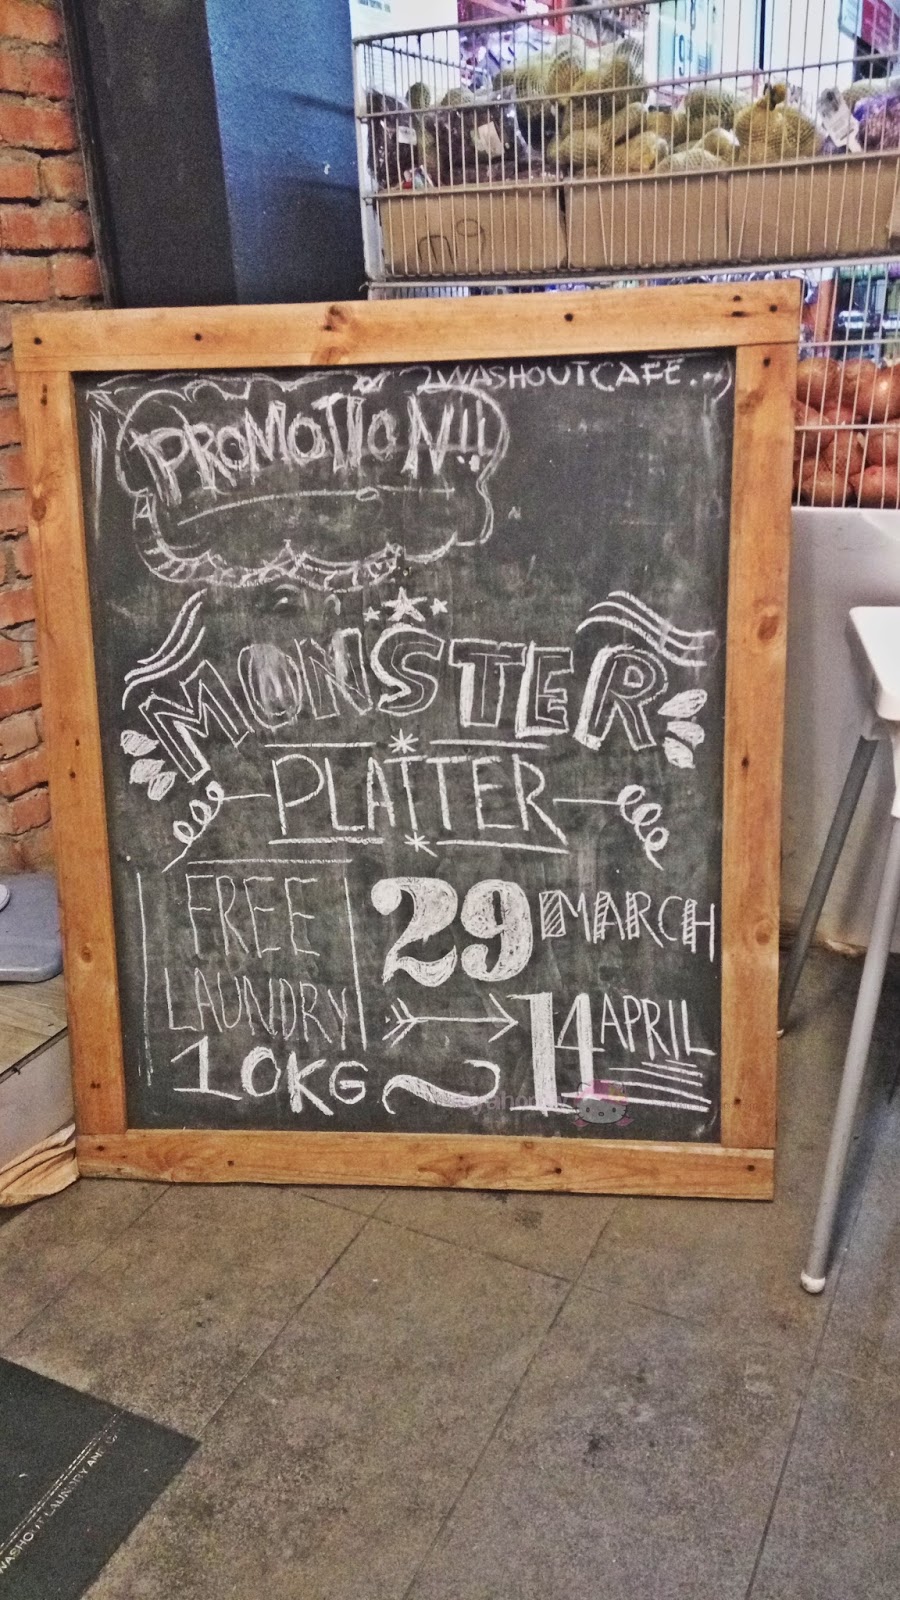 WASHOUTCAFE
PROMOTION!!
MONSTER
PLATTER
FREE
LAUNDRY
10KG
29 MARCH
14 APRIL
m9
WASHOUT LAUNDRY AND